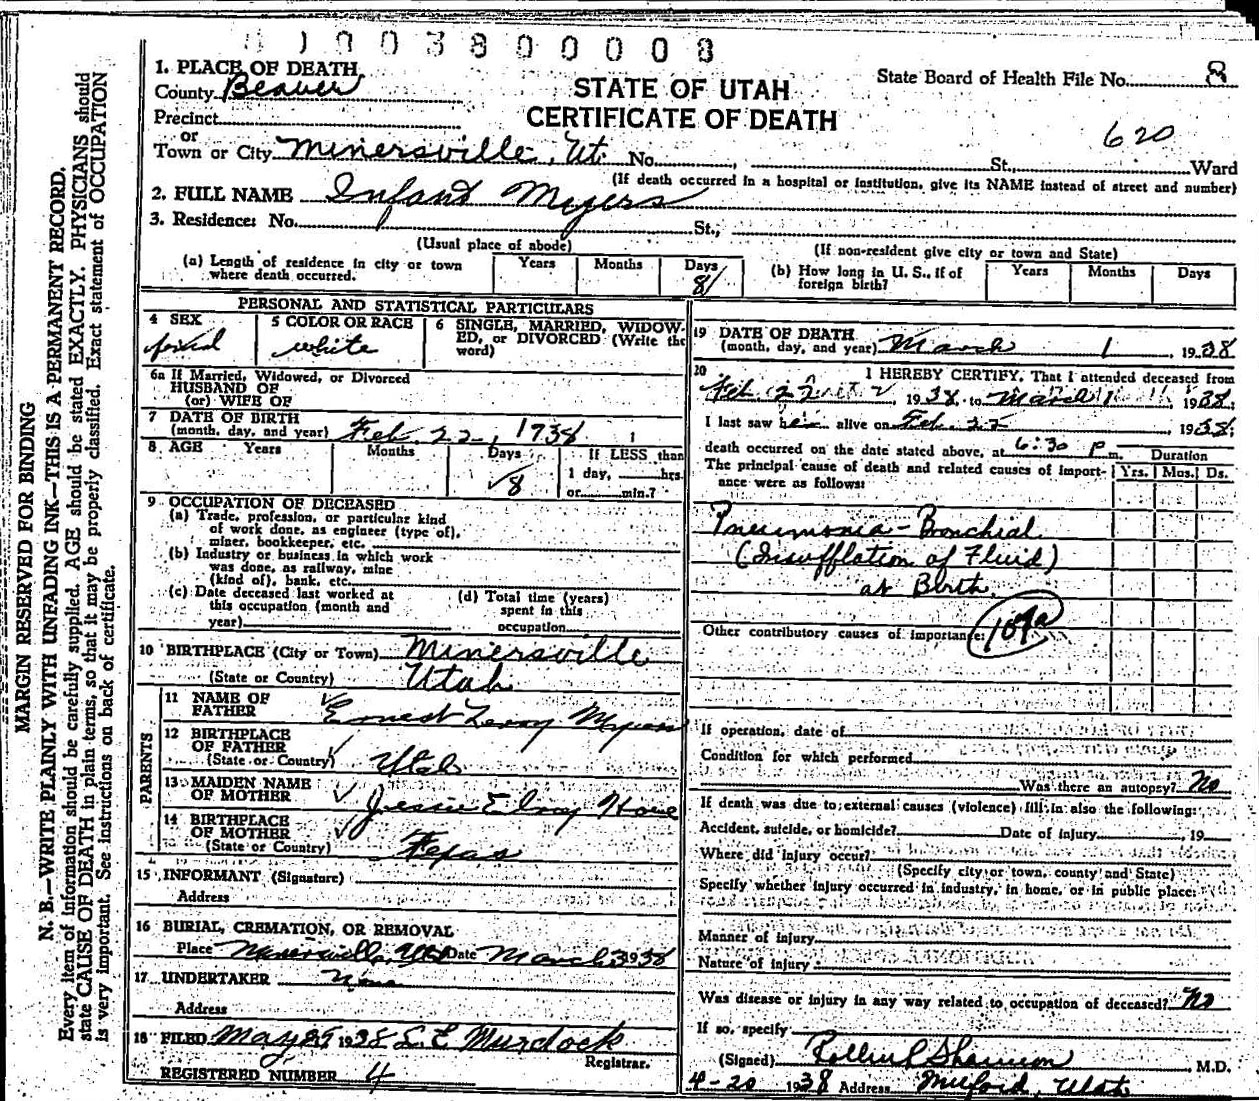 0 1 0 0 3 8 0 0 0 0 8
1. PLACE OF DEATH
County Beaver
STATE OF UTAH
CERTIFICATE OF DEATH
State Board of Health File No. 8
Precinct
or
Town or City Minersville, Ut. No. , St., 620 Ward
(If death occurred in a hospital or institution, give its NAME instead of street and number)
2. FULL NAME Infant Myers
3. Residence: No. St.,
(Usual place of abode) (If non-resident give city or town and State)
(a) Length of residence in city or town where death occurred. Years Months Days 8
(b) How long in U. S., if of foreign birth? Years Months Days
PERSONAL AND STATISTICAL PARTICULARS
4 SEX
5 COLOR OR RACE white
6 SINGLE, MARRIED, WIDOWED, or DIVORCED (Write the word)
6a If Married, Widowed, or Divorced
HUSBAND OF
(or) WIFE OF
7 DATE OF BIRTH
(month, day, and year) Feb. 22, 1938
8 AGE Years Months Days 8 If LESS than
1 day, hrs.
or min.?
9 OCCUPATION OF DECEASED
(a) Trade, profession, or particular kind
of work done, as engineer (type of),
miner, bookkeeper, etc.
(b) Industry or business in which work
was done, as railway, mine
(kind of), bank, etc.
(c) Date deceased last worked at
this occupation (month and
year)
(d) Total time (years)
spent in this
occupation
10 BIRTHPLACE (City or Town) Minersville
(State or Country) Utah
PARENTS
11 NAME OF
FATHER Ernest Leroy Myers
12 BIRTHPLACE
OF FATHER
(State or Country) Utah
13 MAIDEN NAME
OF MOTHER Jessie
14 BIRTHPLACE
OF MOTHER
(State or Country) Texas
15 INFORMANT (Signature)
Address
16 BURIAL, CREMATION, OR REMOVAL
Place Minersville, Utah Date March 3 1938
17 UNDERTAKER None
Address
18 FILED May 1938 L. E. Murdock
Registrar.
REGISTERED NUMBER 4
19 DATE OF DEATH
(month, day, and year) March 1, 1938
20 I HEREBY CERTIFY, That I attended deceased from
Feb. 22, 1938 to March 1 1938
I last saw alive on Feb. 22 1938
death occurred on the date stated above, at 6:30 p m. Duration
The principal cause of death and related causes of import- Yrs. Mos. Ds.
ance were as follows:
Pneumonia - Bronchial
(Insufflation of Fluid)
at Birth
Other contributory causes of importance: 107a
If operation, date of
Condition for which performed
Was there an autopsy? No
If death was due to external causes (violence) fill in also the following:
Accident, suicide, or homicide? Date of injury , 19
Where did injury occur?
(Specify city or town, county and State)
Specify whether injury occurred in industry, in home, or in public place:
Manner of injury
Nature of injury
Was disease or injury in any way related to occupation of deceased? No
If so, specify
(Signed) M.D.
4-20 1938 Address Milford, Utah
MARGIN RESERVED FOR BINDING
N. B.—WRITE PLAINLY WITH UNFADING INK—THIS IS A PERMANENT RECORD.
Every item of information should be carefully supplied. AGE should be stated EXACTLY. PHYSICIANS should
state CAUSE OF DEATH in plain terms, so that it may be properly classified. Exact statement of OCCUPATION
is very important. See instructions on back of certificate.